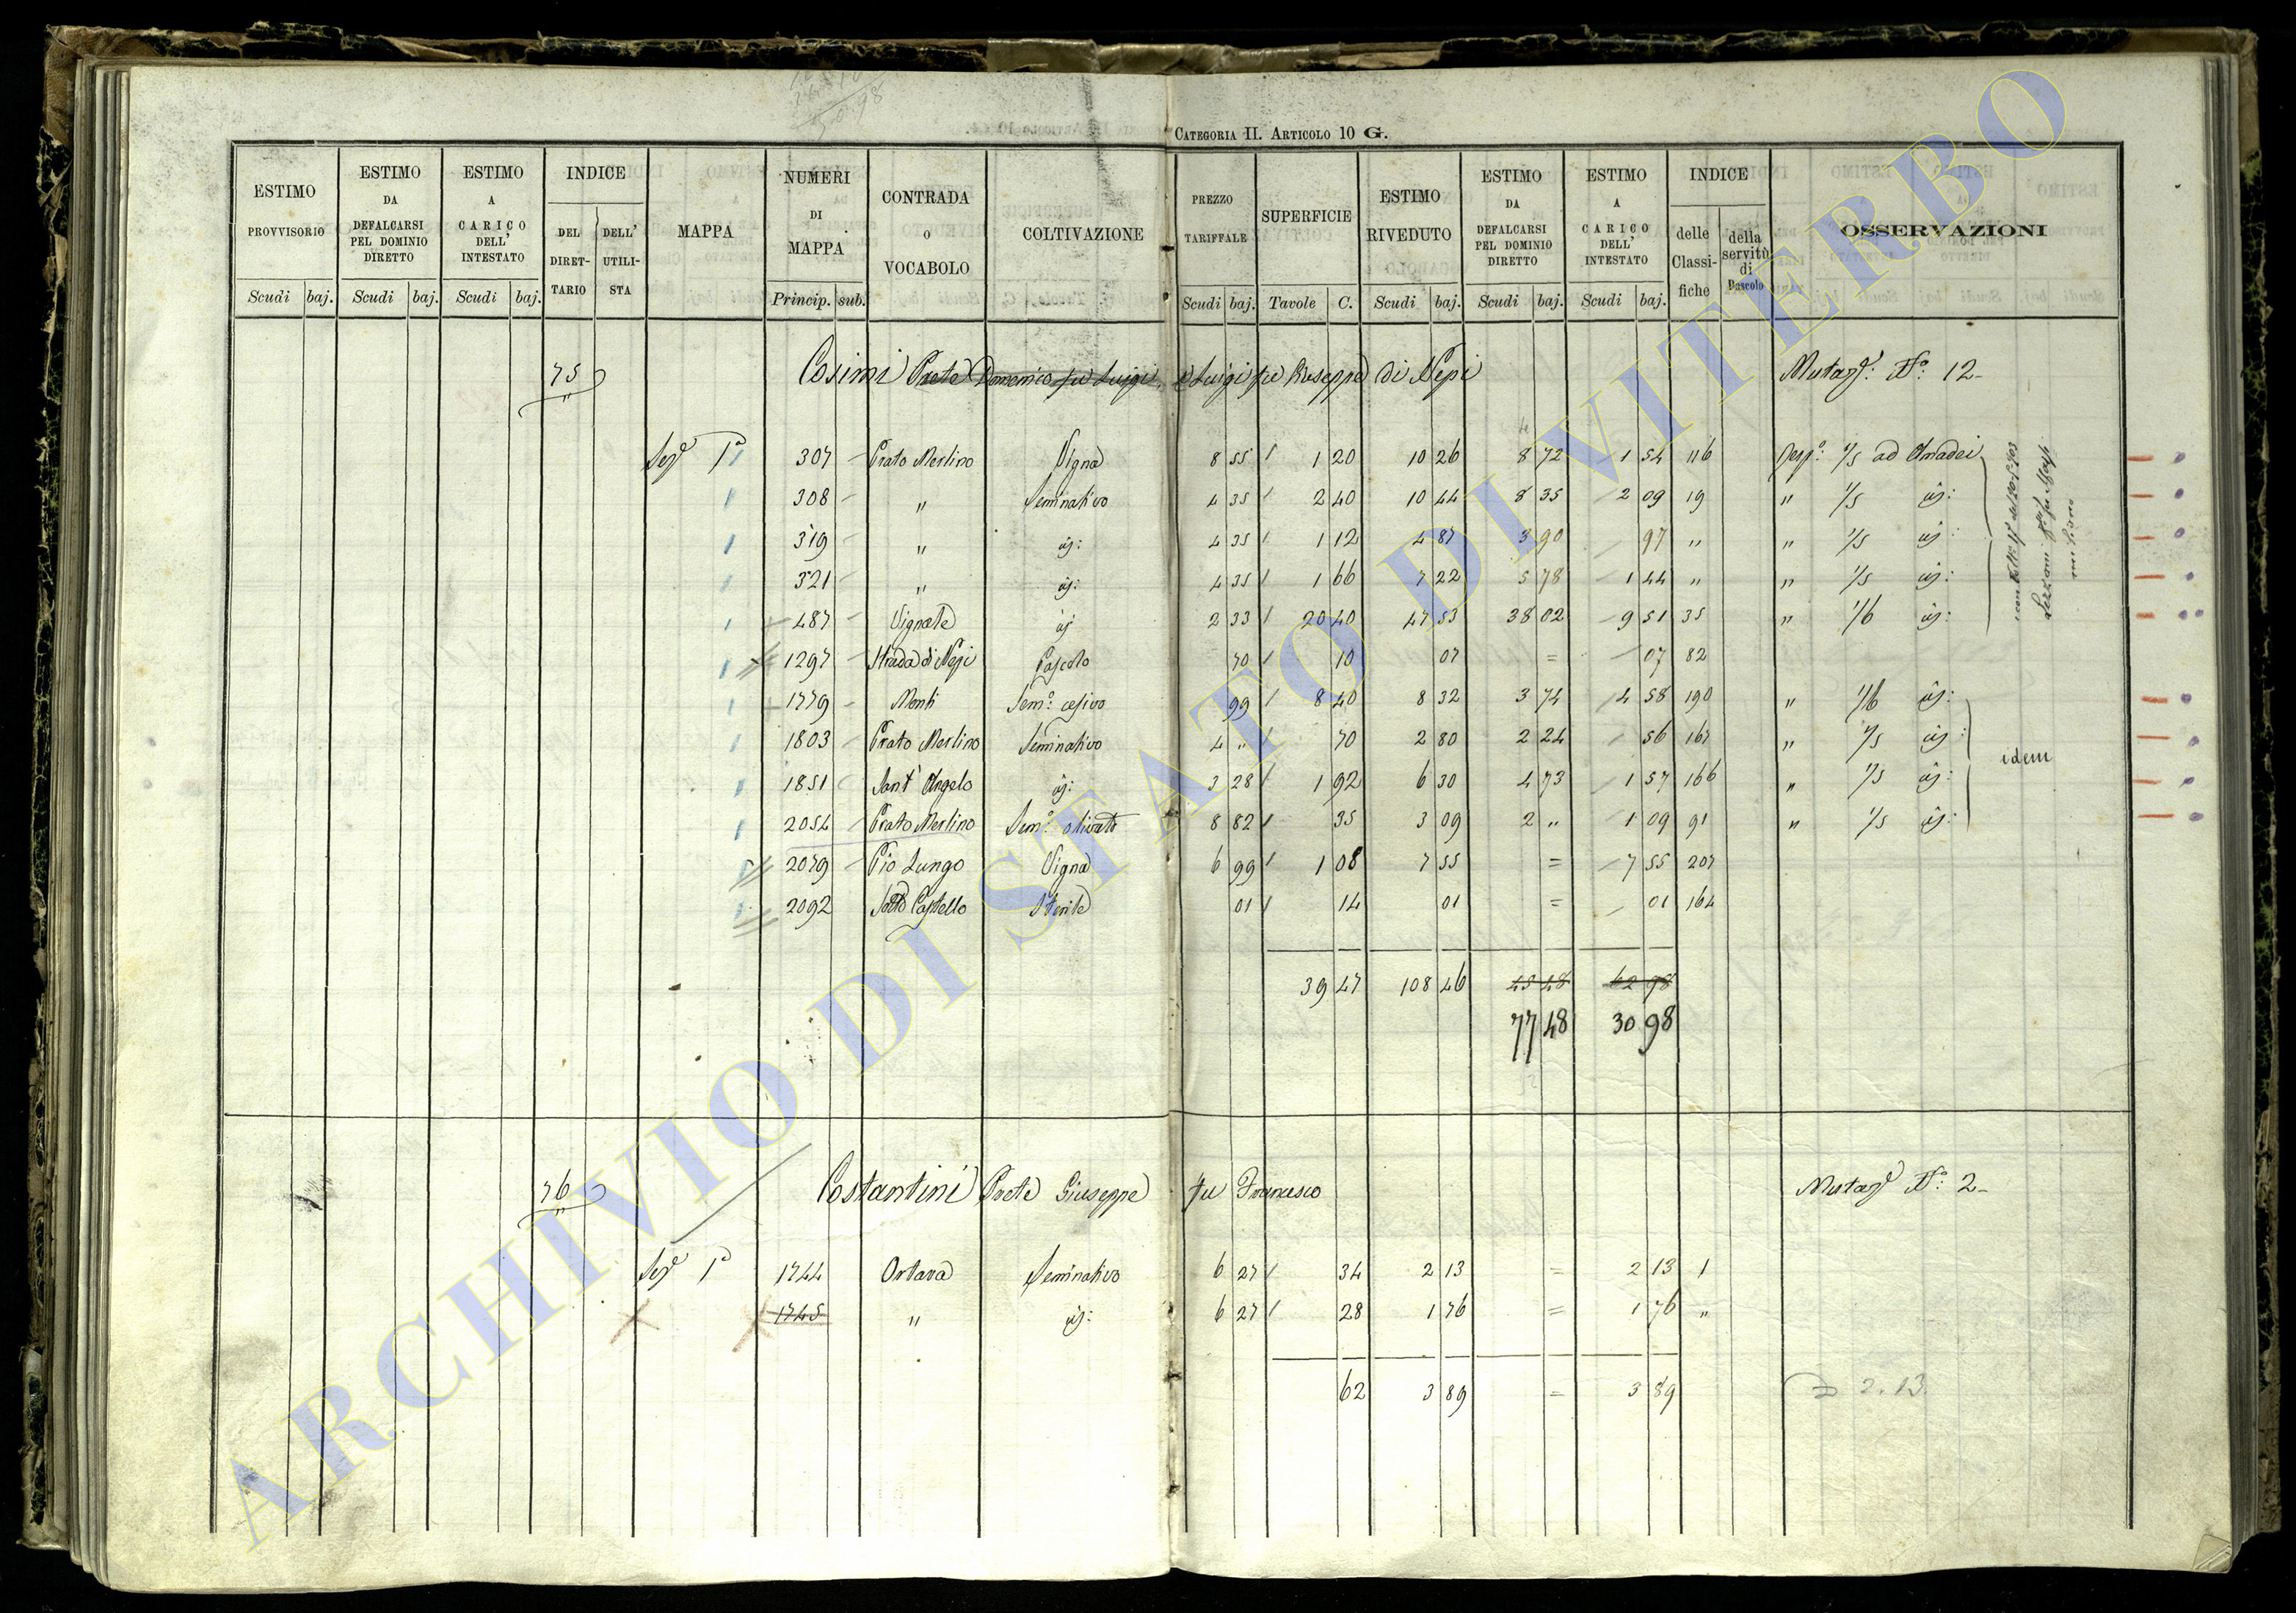 CATEGORIA II. ARTICOLO 10 G.
ESTIMO PROVVISORIO Scudi baj.
ESTIMO DA DEFALCARSI PEL DOMINIO DIRETTO Scudi baj.
ESTIMO A CARICO DELL' INTESTATO Scudi baj.
INDICE DEL DIRET- TARIO DELL' UTILI- STA
MAPPA
NUMERI DI MAPPA Princip. sub.
CONTRADA O VOCABOLO
COLTIVAZIONE
PREZZO TARIFFALE Scudi baj.
SUPERFICIE Tavole C.
ESTIMO RIVEDUTO Scudi baj.
ESTIMO DA DEFALCARSI PEL DOMINIO DIRETTO Scudi baj.
ESTIMO A CARICO DELL' INTESTATO Scudi baj.
INDICE delle Classi- fiche della servitù di Pascolo
OSSERVAZIONI
75 Cosimi Prete Domenico fu Luigi Luigi fu Giuseppe di Nepi Mutaz.e N.o 12
Sez.e 1a 307 Prato Merlino Vigna 8 55 1 20 10 26 8 72 1 54 116 1/5 ad Amadei
308 " Seminativo 4 35 2 40 10 44 8 35 2 09 19 " 1/5 id:
319 " id: 4 35 1 12 4 87 3 90 97 " " 1/5 id:
321 " id: 4 35 1 66 7 22 5 78 1 44 " " 1/5 id:
487 Vignale id: 2 33 20 40 47 53 38 02 9 51 35 " 1/6 id:
1297 Strada di Nepi Pascolo 70 10 07 = 07 82
1779 Monti Sem.o cesivo 99 8 40 8 32 3 74 4 58 190 " 1/6 id:
1803 Prato Merlino Seminativo 4 " 70 2 80 2 24 56 167 " 1/5 id:
1851 Sant' Angelo id: 3 28 1 92 6 30 4 73 1 57 166 " 1/5 id:
idem
2054 Prato Merlino Sem.o olivato 8 82 35 3 09 2 " 1 09 91 " 1/5 id:
2079 Pio Lungo Vigna 6 99 1 08 7 55 = 7 55 207
2092 Sotto Castello Sterile 01 14 01 = 01 164
39 47 108 46 45 48 62 98
77 48 30 98
76 Costantini Prete Giuseppe fu Francesco Mutaz.e N.o 2
Sez.e 1a 1744 Ortava Seminativo 6 27 34 2 13 = 2 13 1
1745 " id: 6 27 28 1 76 = 1 76 "
62 3 89 = 3 89 2.13
ARCHIVIO DI STATO DI VITERBO